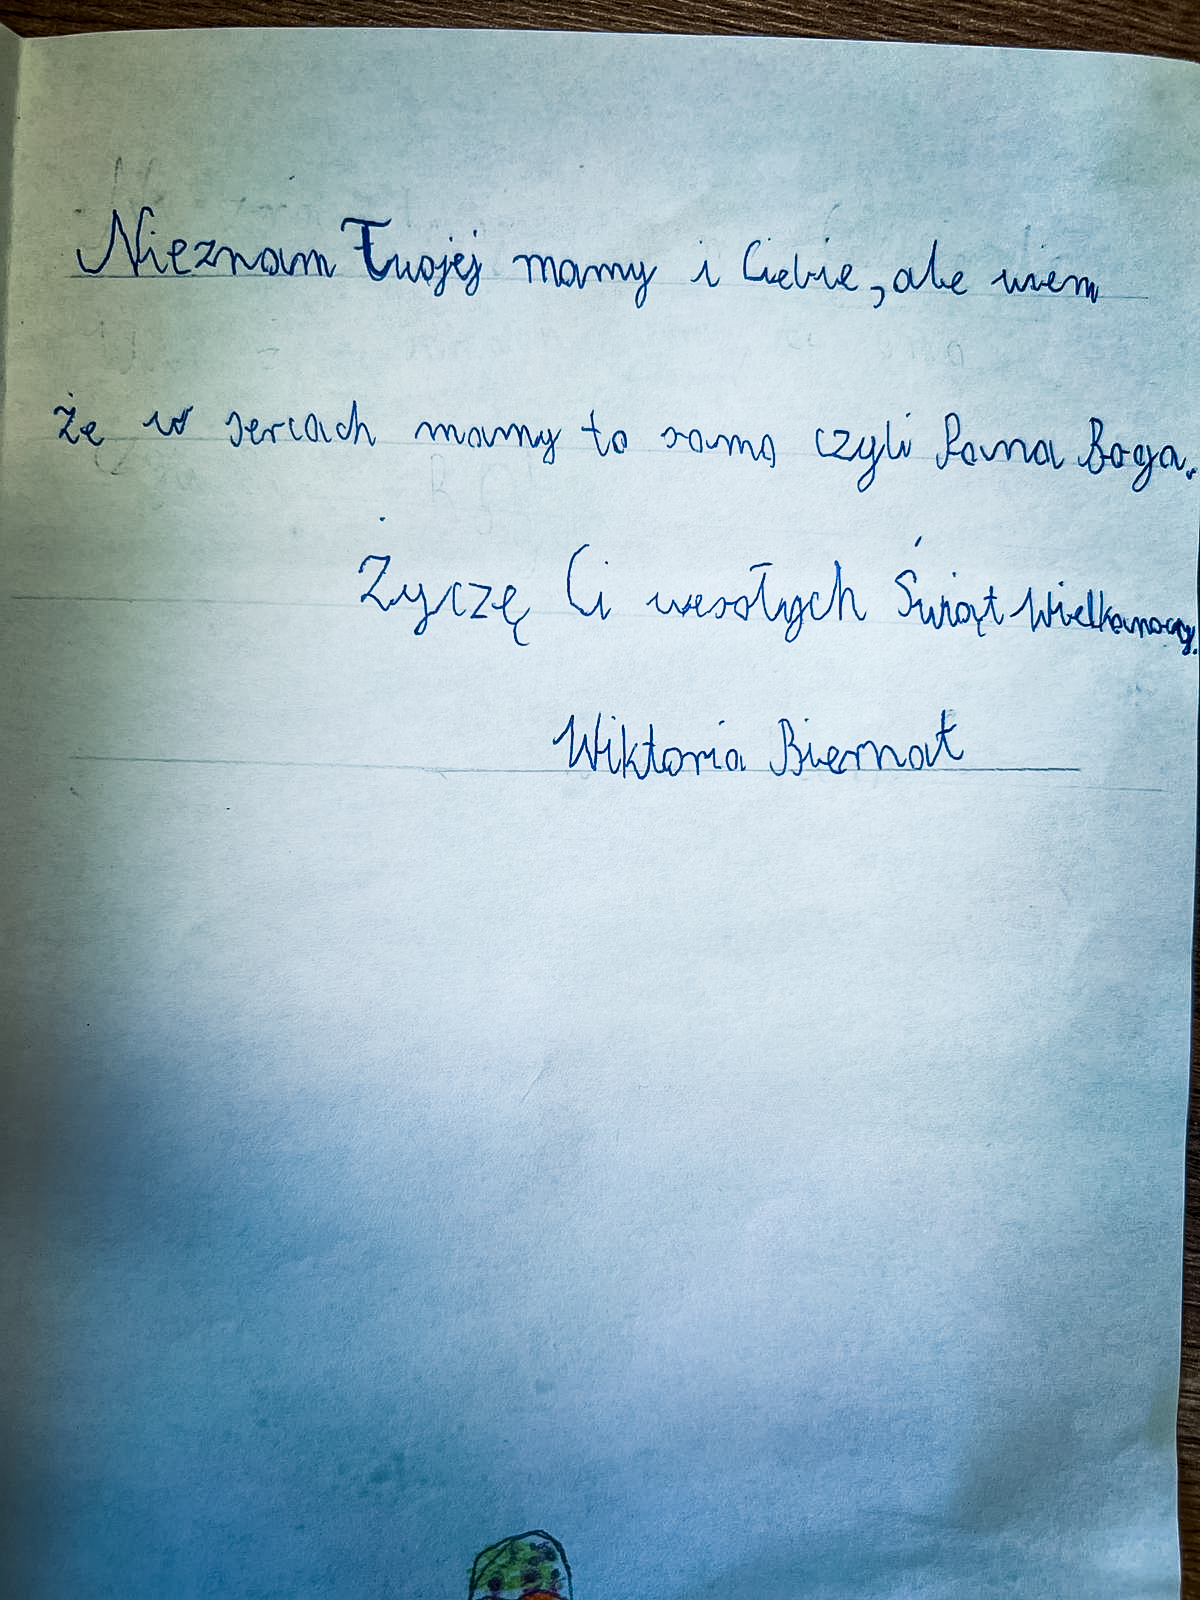 Nieznam Twojej mamy i Ciebie, ale wiem
że w sercach mamy to samo czyli Pana Boga.
Życzę Ci wesołych Świąt Wielkanocy.
Wiktoria Biernat